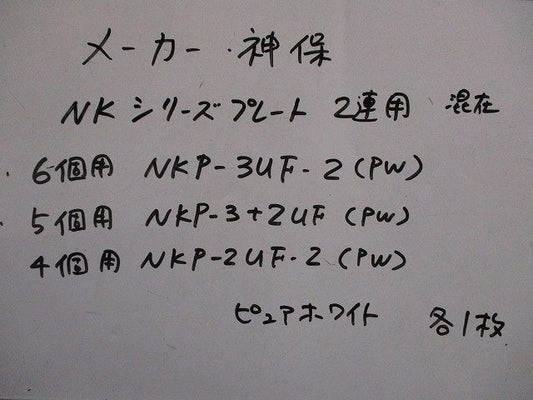 メーカー・神保
NKシリーズプレート 2連用 混在
・6個用 NKP-3UF-2(PW)
・5個用 NKP-3+2UF (PW)
4個用 NKP-2UF-2 (PW)
ピュアホワイト 各1枚